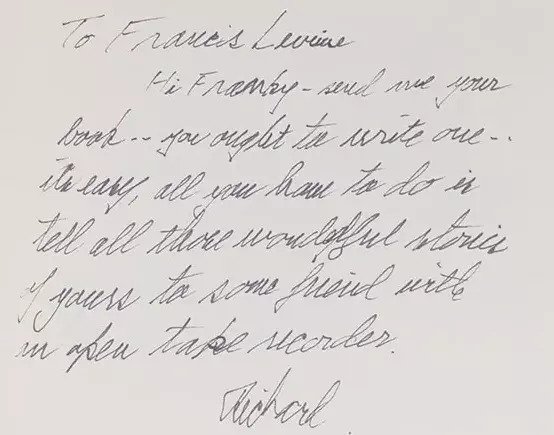 To Francis Levine
Hi Franky - send me your
book -- you ought to write one --
its easy, all you have to do is
tell all those wonderful stories
of yours to some friend with
an open tape recorder.
Richard